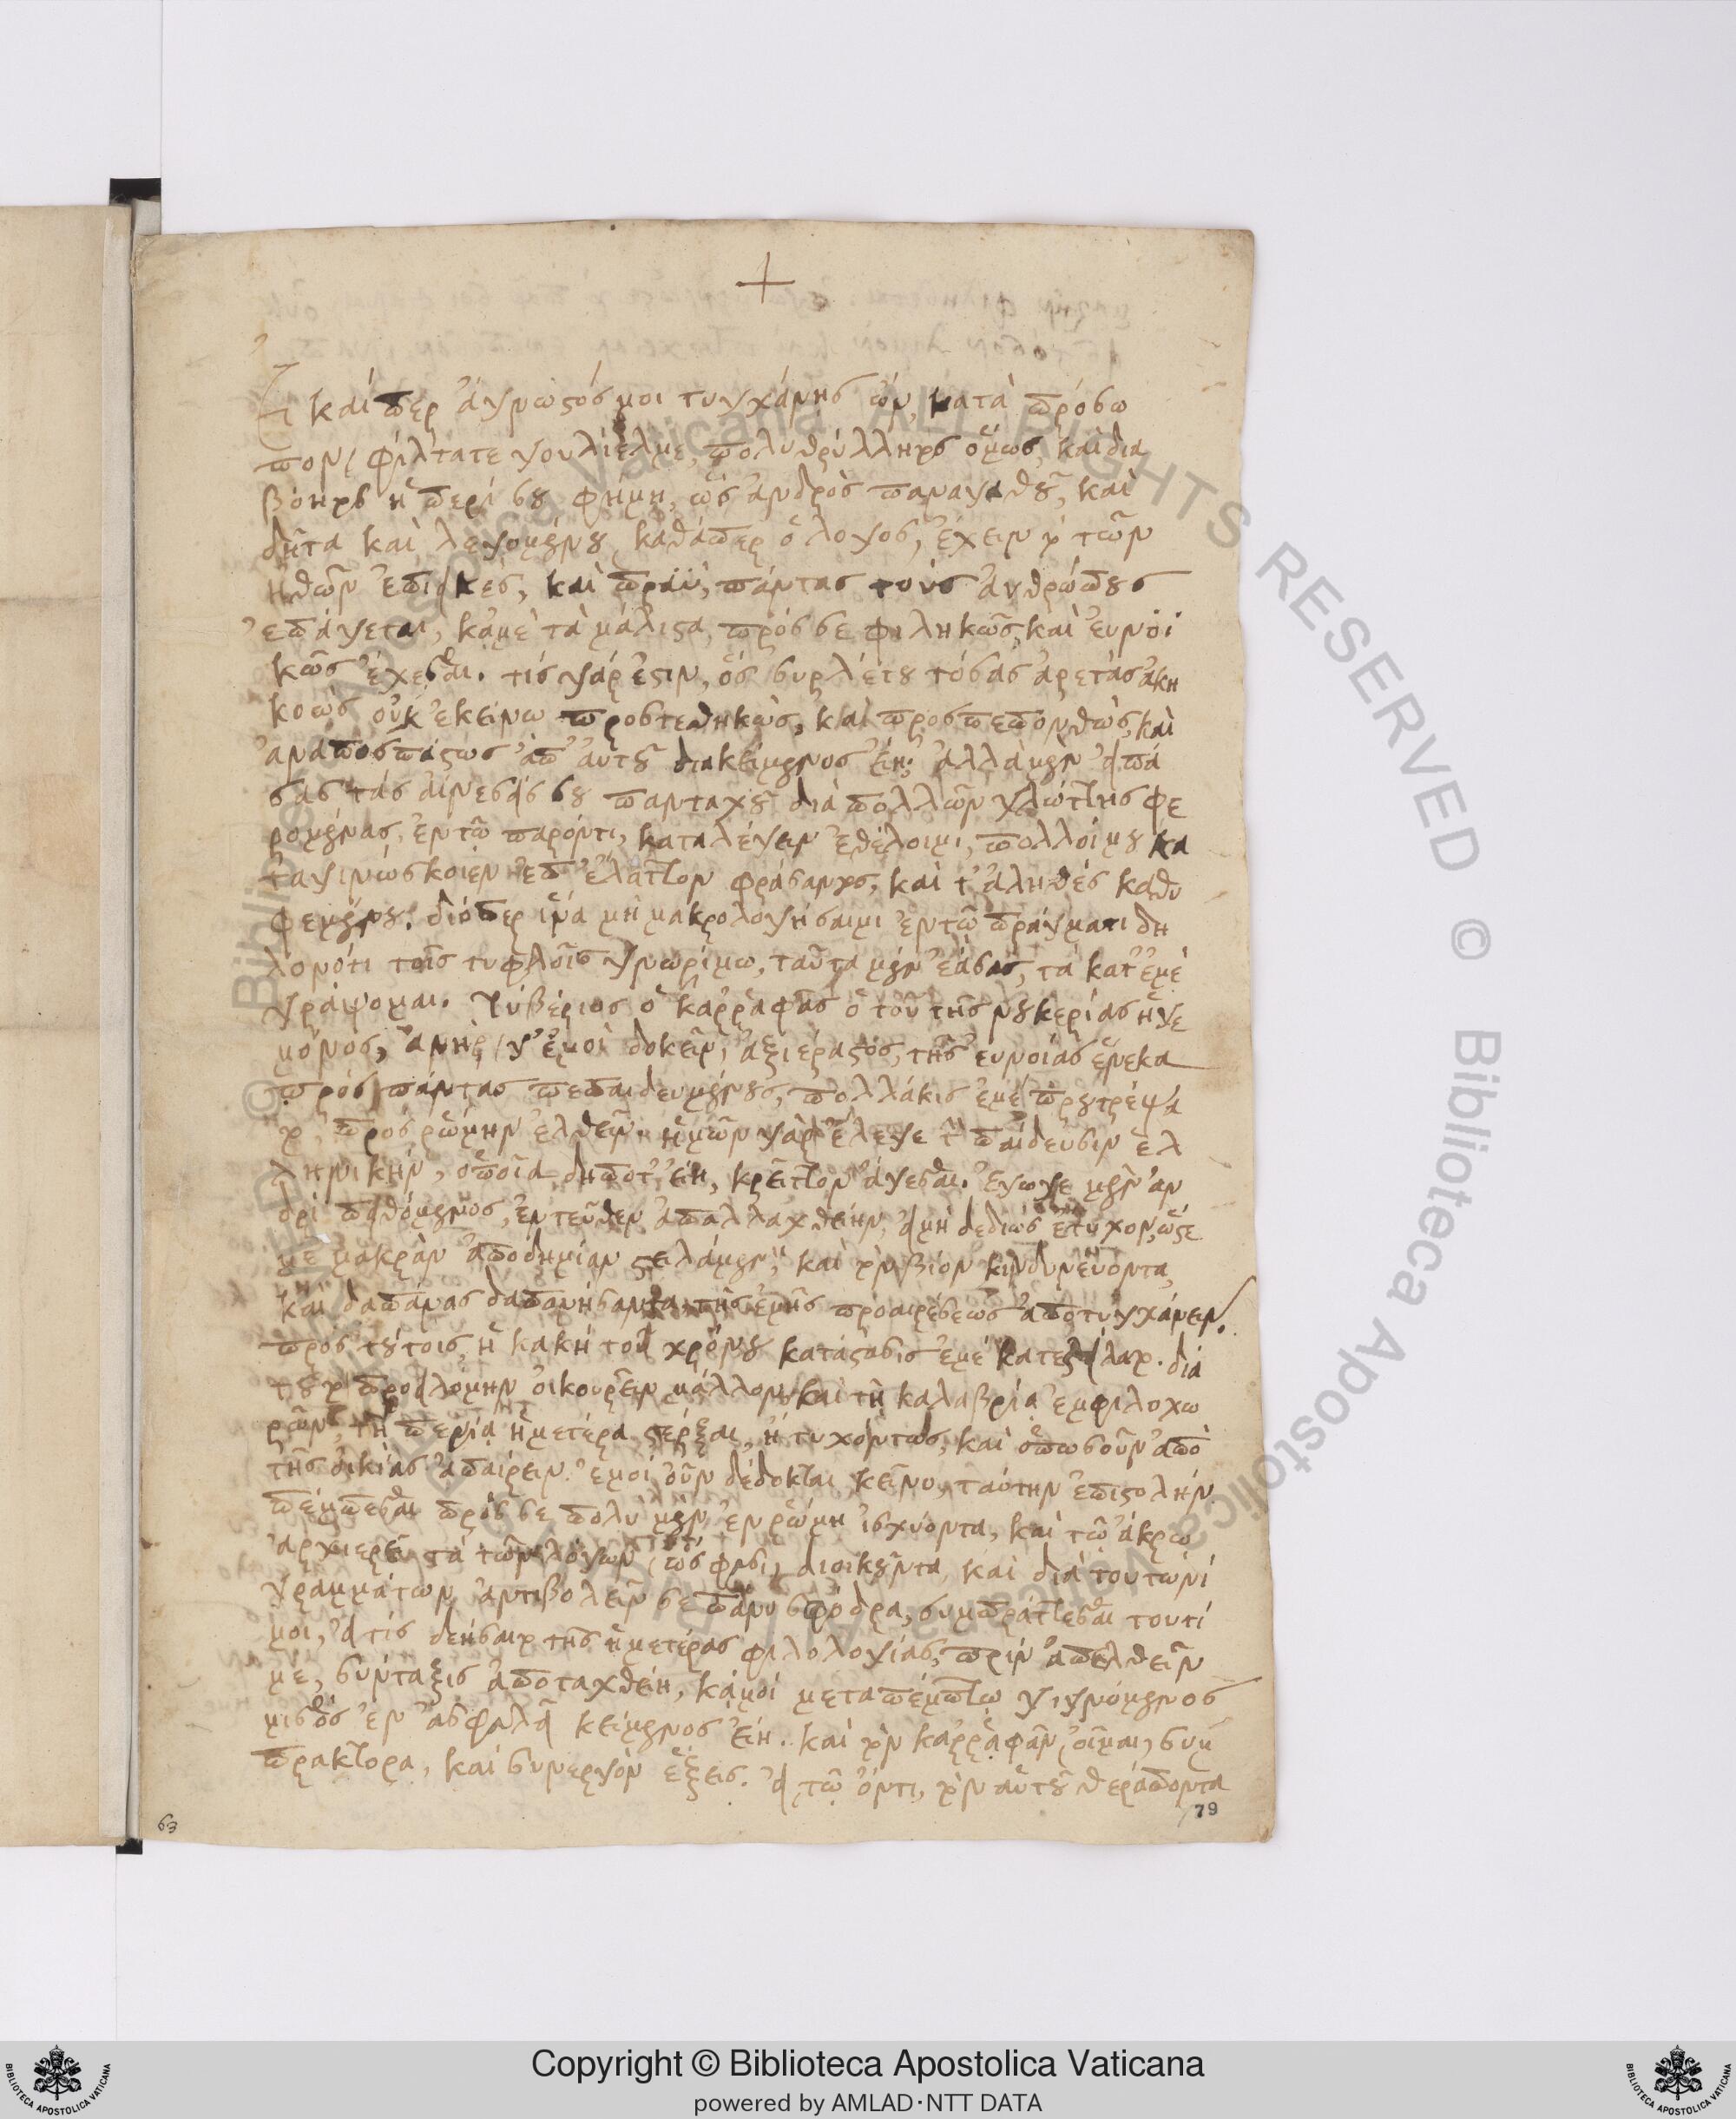 +
Εἰ καίπερ ἄγνωστός μοι τυγχάνης ὤν, κατὰ πρόσω
πον, φίλτατε γουλιέλμε, πολυθρύλλητος ὅμως, καὶ δια
βόητος ἡ περί σου φήμη, ὡς ἀνδρὸς παναγάθου, καὶ
δῆτα καὶ λεγομένου, καθάπερ ὁ λόγος, ἔχειν τὸ τῶν
ἠθῶν ἐπιεικές, καὶ πράϋ, πάντας τοὺς ἀνθρώπους
ἐπάγεται, κἀμὲ τὰ μάλιστα, πρός σε φιλικῶς, καὶ εὐνοϊ
κῶς ἔχεσθαι. τίς γάρ ἐστιν, ὅς τόσας ἀρετὰς ἀκη
κοὼς οὐκ ἐκείνω προστεθηκὼς, καὶ προσπεπονθὼς, καὶ
ἀναποσπάστως ἀπ' αὐτοῦ διακείμενος εἴη; ἀλλὰ μὲν εἰ πά
σας τὰς αἰνέσεις σου πανταχοῦ διὰ πολλῶν γλώττης φε
ρομένας, ἐν τῶ παρόντι, καταλέγειν ἐθέλοιμι, πολλοί μου κα
ταγινώσκοιεν ἐπ' ἔλαττον φράσαντος, καὶ τ' ἀληθὲς καθυ
φεμένου. διόπερ ἵνα μὴ μακρολογήσαιμι ἐν τῶ πράγματι δη
λονότι τοῖς τυφλοῖς γνωρίμω, ταῦτα μὲν ἐάσας, τὰ κατ' ἐμὲ
γράψομαι. Τιβέριος ὁ καρράφας ὁ τοῦ τῆς νουκερίας ἡγε
μόνος, ἀνὴρ, γ' ἐμοὶ δοκεῖν, ἀξιέραστος, τῆς εὐνοίας ἕνεκα
πρὸς πάντας πεπαιδευμένους, πολλάκις ἐμὲ προυτρέψα
το, πρὸς ῥώμην ἐλθεῖν. ἡμῶν γὰρ ἔλεγε τὴν παίδευσιν ἑλ
ληνικὴν, ὁποῖα δήποτ' εἴη, κρεῖττον ἄγεσθαι. ἔγωγε μὲν ἀν
δρὶ πειθόμενος, ἐντεῦθεν ἀπαλλαχθείην, εἰ μὴ δεδιὼς ἐτύχον, ὥστε
με μακρὰν ἀποδημίαν στειλάμενον, καὶ τὸν βίον κινδυνεύοντα,
καὶ δαπάνας δαπανήσαντα, τῆς ἐμῆς προαιρέσεως ἀποτυγχάνειν.
πρὸς τούτοις, ἡ κακὴ τοῦ χρόνου κατάστασις ἐμὲ κατεστείλατο. διὰ
τοῦτο προειλόμην οἰκουρεῖν μᾶλλον, καὶ τῆ καλαβρία ἐμφιλοχω
ρῶν, τῆ πενία ἡμετέρα στέρξαι, ἢ τυχόντως, καὶ ὁπωσοῦν ἀπὸ
τῆς οἰκίας ἀπαίρειν. ἐμοὶ οὖν δέδοκται κεῖνο, ταύτην ἐπιστολὴν
πέμπεσθαι πρός σε πολὺ μὲν ἐν ῥώμη ἰσχύοντα, καὶ τῶ ἄκρω
ἀρχιερεῖ τὰ τῶν λόγων, ὥς φασι, διοικοῦντα, καὶ διὰ τουτωνὶ
γραμμάτων ἀντιβολεῖν σε πάνυ σφόδρα, συμπράττεσθαι τουτὶ
μοι, εἰ τίς δεήσαιτο τῆς ἡμετέρας φιλολογίας, πρὶν ἀπελθεῖν
με, σύνταξις ἀποταχθείη, κἀμοὶ μεταπέμπτω γιγνόμενος
μισθὸς ἐν ἀσφαλεῖ κείμενος εἴη. καὶ τὸν καρράφαν, οἶμαι, συμ
πράκτορα, καὶ συνεργὸν ἕξεις. εἰ τῶ ὄντι, τὸν αὐτοῦ θεράποντα
79
63
© Biblioteca Apostolica Vaticana ALL RIGHTS RESERVED
Copyright © Biblioteca Apostolica Vaticana
powered by AMLAD·NTT DATA
BIBLIOTECA APOSTOLICA VATICANA
BIBLIOTECA APOSTOLICA VATICANA